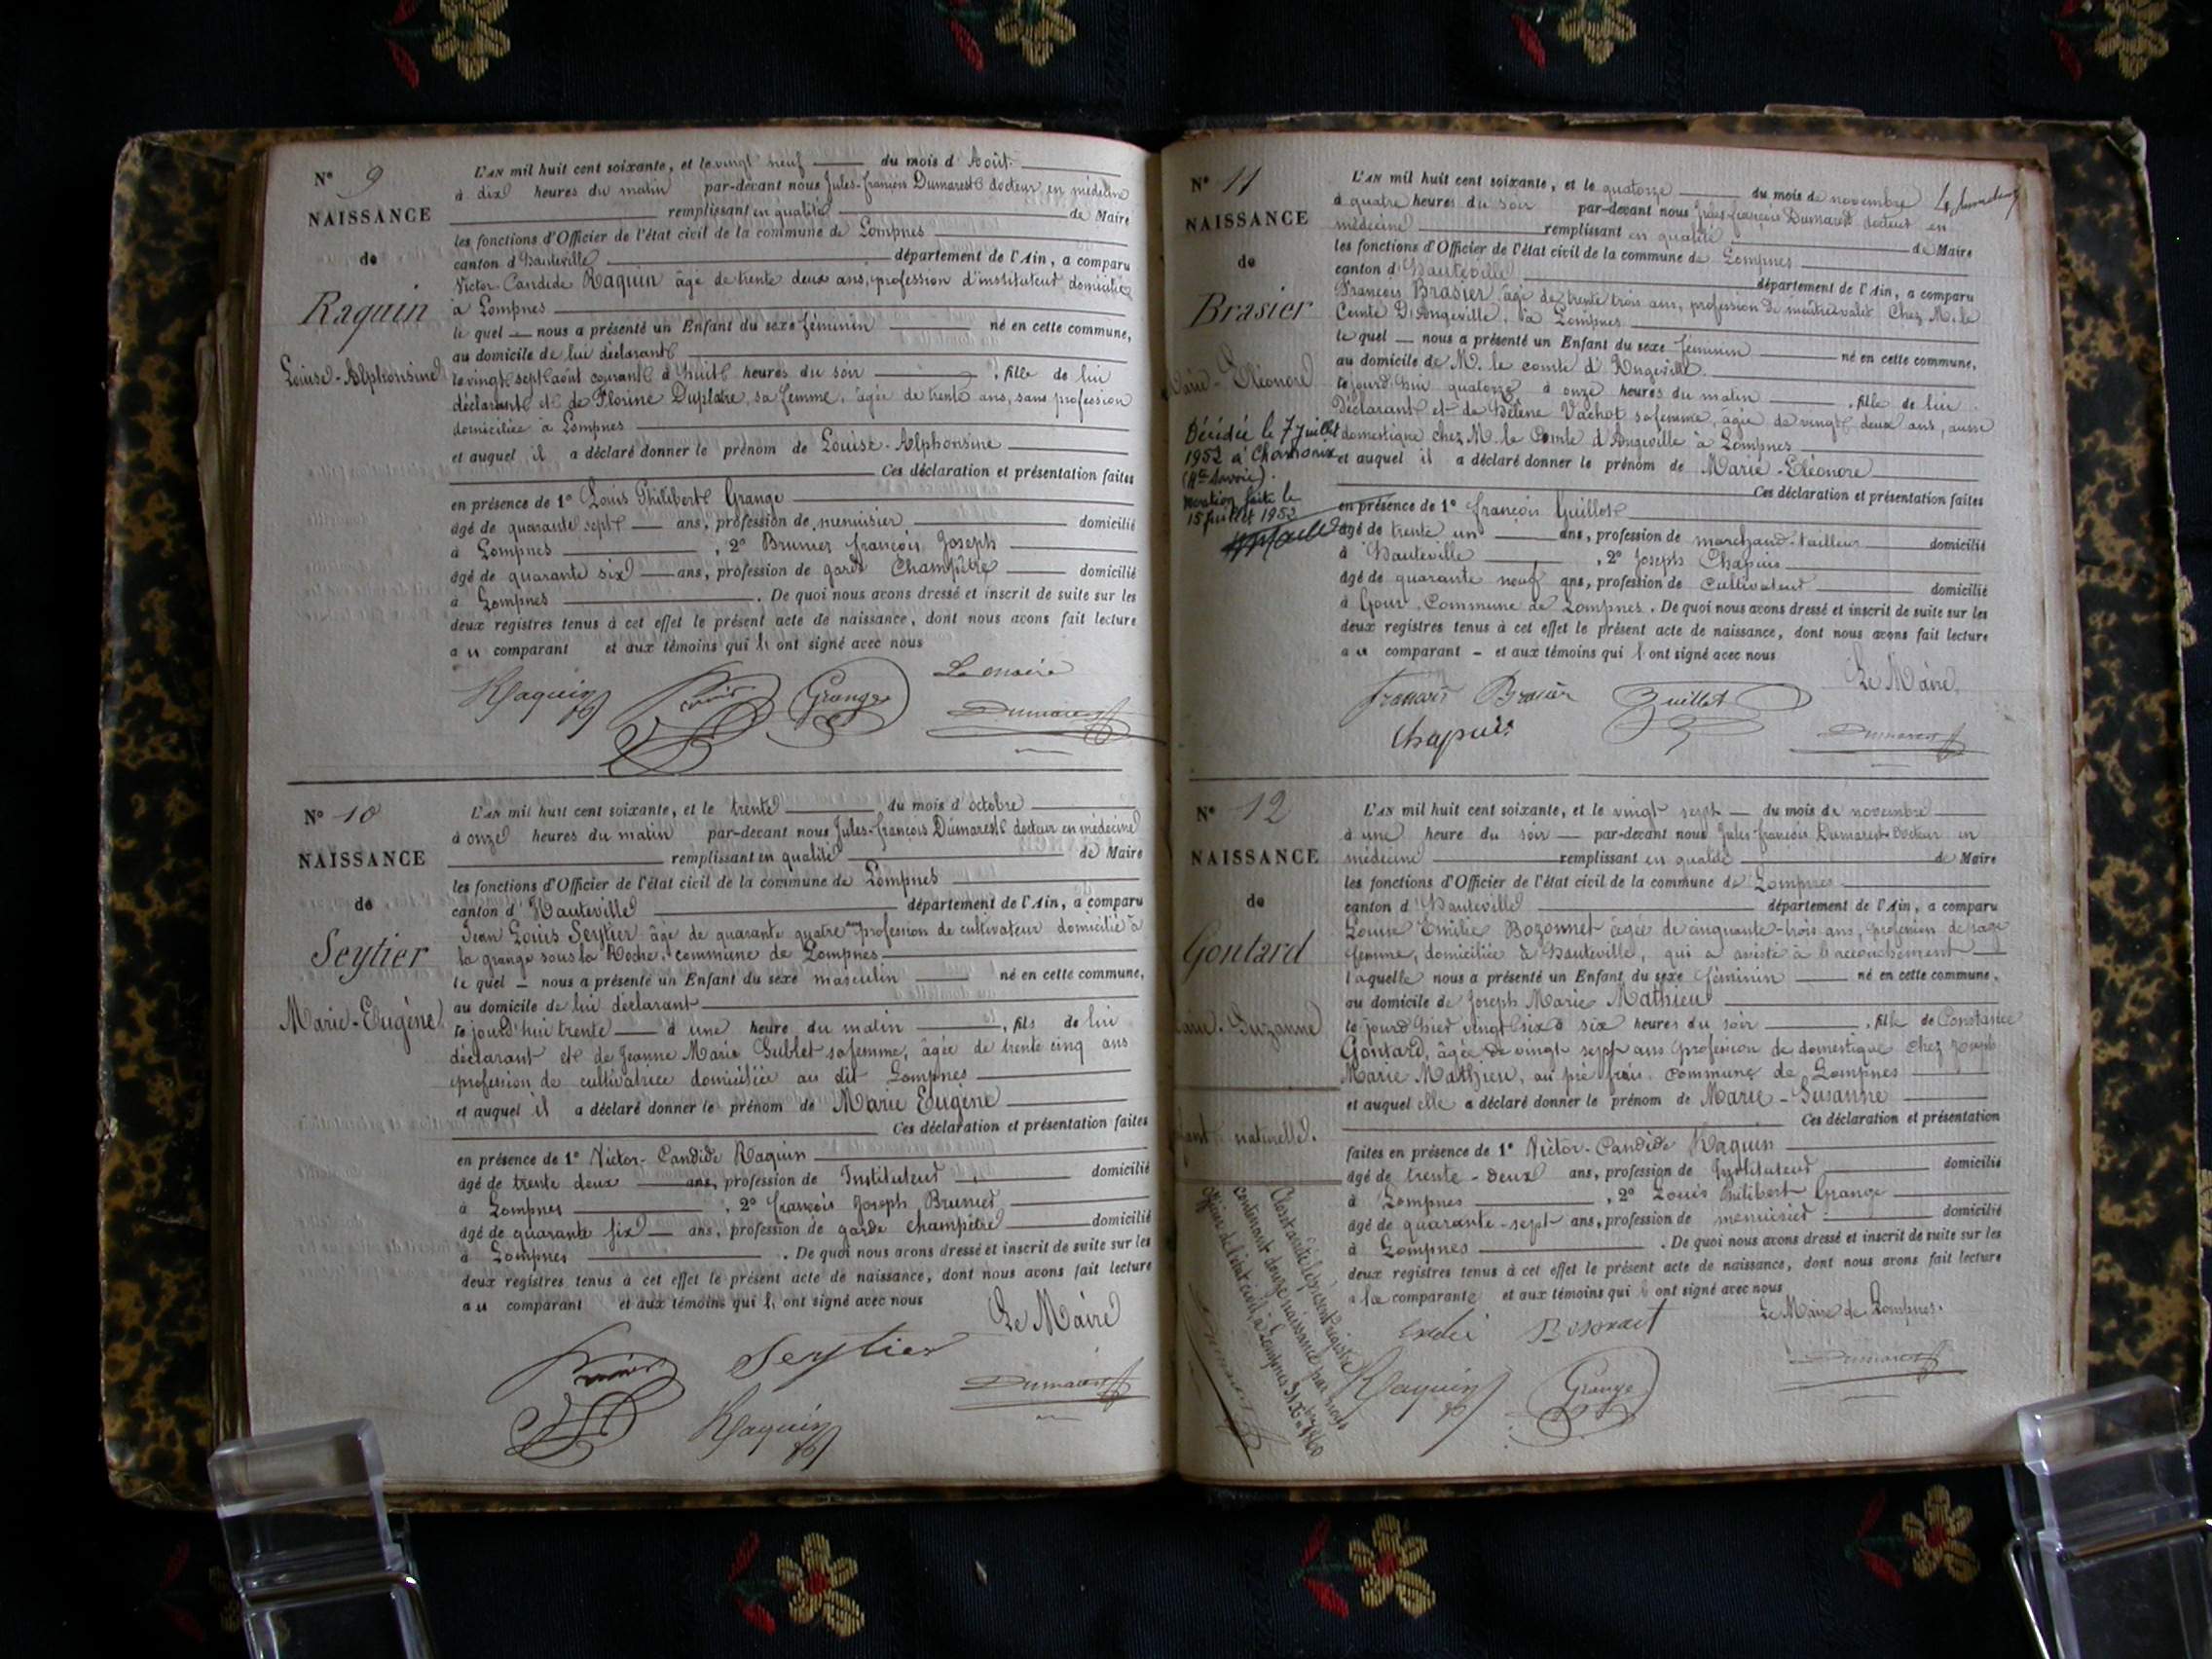 N° 9
NAISSANCE
de
Raquin
Louise-Alphonsine
L'AN mil huit cent soixante, et le vingt neuf du mois d'Août
à dix heures du matin par-devant nous Jules-françois Dumarest docteur en médecine
remplissant en qualité de Maire
les fonctions d'Officier de l'état civil de la commune de Lompnes
canton d'hauteville département de l'Ain, a comparu
Victor-Candide Raquin âgé de trente deux ans, profession d'instituteur domicilié
à Lompnes
le quel nous a présenté un Enfant du sexe féminin né en cette commune,
au domicile de lui déclarant
le vingt sept août courant à huit heures du soir, fille de lui
déclarant et de Florine sa femme, âgée de trente ans, sans profession
domiciliée à Lompnes
et auquel il a déclaré donner le prénom de Louise-Alphonsine
Ces déclaration et présentation faites
en présence de 1° Louis Philibert Grange
âgé de quarante sept ans, profession de menuisier domicilié
à Lompnes, 2° Brunier françois Joseph
âgé de quarante six ans, profession de garde Champêtre domicilié
à Lompnes. De quoi nous avons dressé et inscrit de suite sur les
deux registres tenus à cet effet le présent acte de naissance, dont nous avons fait lecture
au comparant et aux témoins qui l'ont signé avec nous
Le maire
Raquin Grange Dumarest
N° 10
NAISSANCE
de
Seytier
Marie-Eugène
L'AN mil huit cent soixante, et le trente du mois d'octobre
à onze heures du matin par-devant nous Jules-françois Dumarest docteur en médecine
remplissant en qualité de Maire
les fonctions d'Officier de l'état civil de la commune de Lompnes
canton d'Hauteville département de l'Ain, a comparu
Jean Louis Seytier âgé de quarante quatre ans profession de cultivateur domicilié à
la grange sous la Roche, commune de Lompnes
le quel nous a présenté un Enfant du sexe masculin né en cette commune,
au domicile de lui déclarant
le jourd'hui trente à une heure du matin, fils de lui
déclarant et de Jeanne Marie Gublet sa femme, âgée de trente cinq ans
profession de cultivatrice domiciliée au dit Lompnes
et auquel il a déclaré donner le prénom de Marie Eugène
Ces déclaration et présentation faites
en présence de 1° Victor-Candide Raquin
âgé de trente deux ans, profession de Instituteur domicilié
à Lompnes, 2° françois Joseph Brunier
âgé de quarante six ans, profession de garde champêtre domicilié
à Lompnes. De quoi nous avons dressé et inscrit de suite sur les
deux registres tenus à cet effet le présent acte de naissance, dont nous avons fait lecture
au comparant et aux témoins qui l'ont signé avec nous
Le Maire
Seytier
Dumarest
Raquin
N° 11
NAISSANCE
de
Brasier
Marie-Eléonore
Décédée le 7 juillet
1952 à Chamonix
(Hte Savoie).
mention faite le
15 juillet 1952
L'AN mil huit cent soixante, et le quatorze du mois de novembre
à quatre heures du soir par-devant nous Jules-françois Dumarest docteur en
médecine remplissant en qualité de Maire
les fonctions d'Officier de l'état civil de la commune de Lompnes
canton d'hauteville département de l'Ain, a comparu
François Brasier, âgé de trente trois ans, profession de maître valet Chez M. le
Comte D'Angeville, à Lompnes
le quel nous a présenté un Enfant du sexe féminin né en cette commune,
au domicile de M. le comte d'Angeville
le jourd'hui quatorze à onze heures du matin, fille de lui
Déclarant et de hélène Vachot sa femme, âgée de vingt deux ans, aussi
domestique chez M. le Comte d'Angeville à Lompnes
et auquel il a déclaré donner le prénom de Marie-Eléonore
Ces déclaration et présentation faites
en présence de 1° françois Guillot
âgé de trente un ans, profession de marchand-tailleur domicilié
à hauteville, 2° Joseph Chapuis
âgé de quarante neuf ans, profession de Cultivateur domicilié
à Commune de Lompnes. De quoi nous avons dressé et inscrit de suite sur les
deux registres tenus à cet effet le présent acte de naissance, dont nous avons fait lecture
au comparant et aux témoins qui l'ont signé avec nous
Le Maire
François Brasier Guillot
Chapuis Dumarest
N° 12
NAISSANCE
de
Gontard
Suzanne
naturelle.
L'AN mil huit cent soixante, et le vingt sept du mois de novembre
à une heure du soir par-devant nous Jules-françois Dumarest Docteur en
médecine remplissant en qualité de Maire
les fonctions d'Officier de l'état civil de la commune de Lompnes
canton d'hauteville département de l'Ain, a comparu
Louise Emilie Bozonnet âgée de cinquante-trois ans, profession de sage
femme, domiciliée à hauteville, qui a assisté à l'accouchement
laquelle nous a présenté un Enfant du sexe féminin né en cette commune,
au domicile de Joseph Marie Mathieu
le jour d'hier vingt six à six heures du soir, fille de Constance
Gontard, âgée de vingt sept ans profession de domestique chez Joseph
Marie Mathieu, au pré frais, commune de Lompnes
et auquel elle a déclaré donner le prénom de Marie-Susanne
Ces déclaration et présentation
faites en présence de 1° Victor-Candide Raquin
âgé de trente-deux ans, profession de Instituteur domicilié
à Lompnes, 2° Louis Philibert Grange
âgé de quarante-sept ans, profession de menuisier domicilié
à Lompnes. De quoi nous avons dressé et inscrit de suite sur les
deux registres tenus à cet effet le présent acte de naissance, dont nous avons fait lecture
à la comparante et aux témoins qui l'ont signé avec nous
Le Maire de Lompnes.
Raquin Grange Dumarest
Clos et arrêté le présent registre
contenant douze naissances par nous
officier de l'état civil à Lompnes 31 Xbre 1860